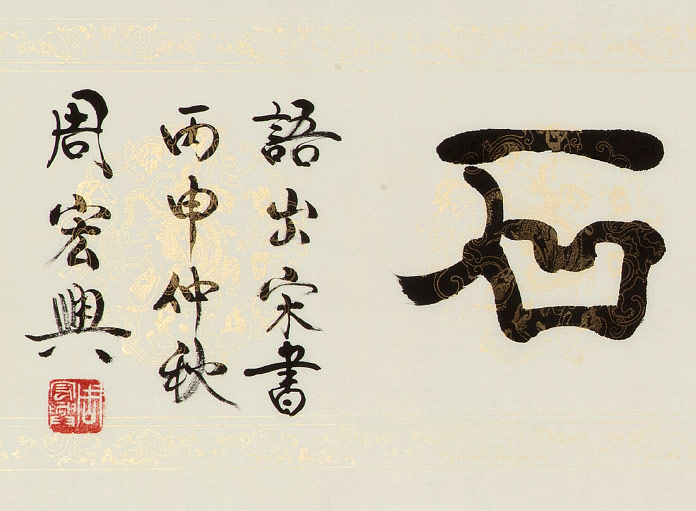 石
語出宋書
丙申仲秋
周宏興